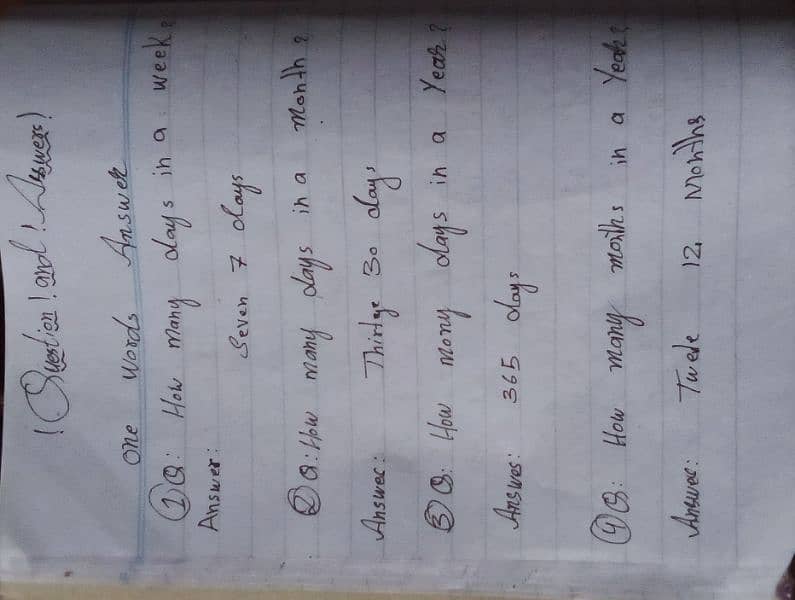 ! Question ! and ! Answers !
One Words Answer
① Q: How many days in a week?
Answer:
Seven 7 days
② Q: How many days in a month?
Answer: Thirtye 30 days
③ Q: How mony days in a Year?
Answer: 365 days
④ Q: How many months in a Year?
Answer: Twele 12 Months